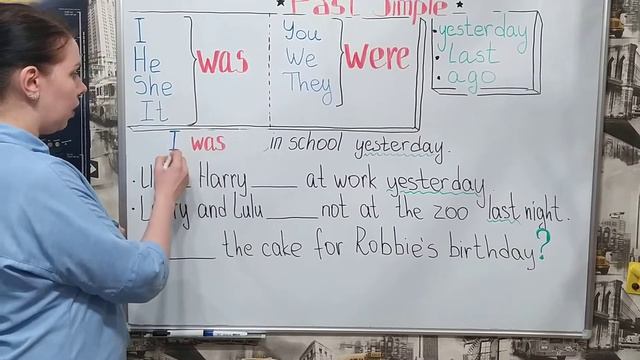 Past Simple
I
He
She
It
was
You
We
They
were
yesterday
Last
ago
I was in school yesterday.
Harry ____ at work yesterday
and Lulu ____ not at the zoo last night.
____ the cake for Robbie's birthday?